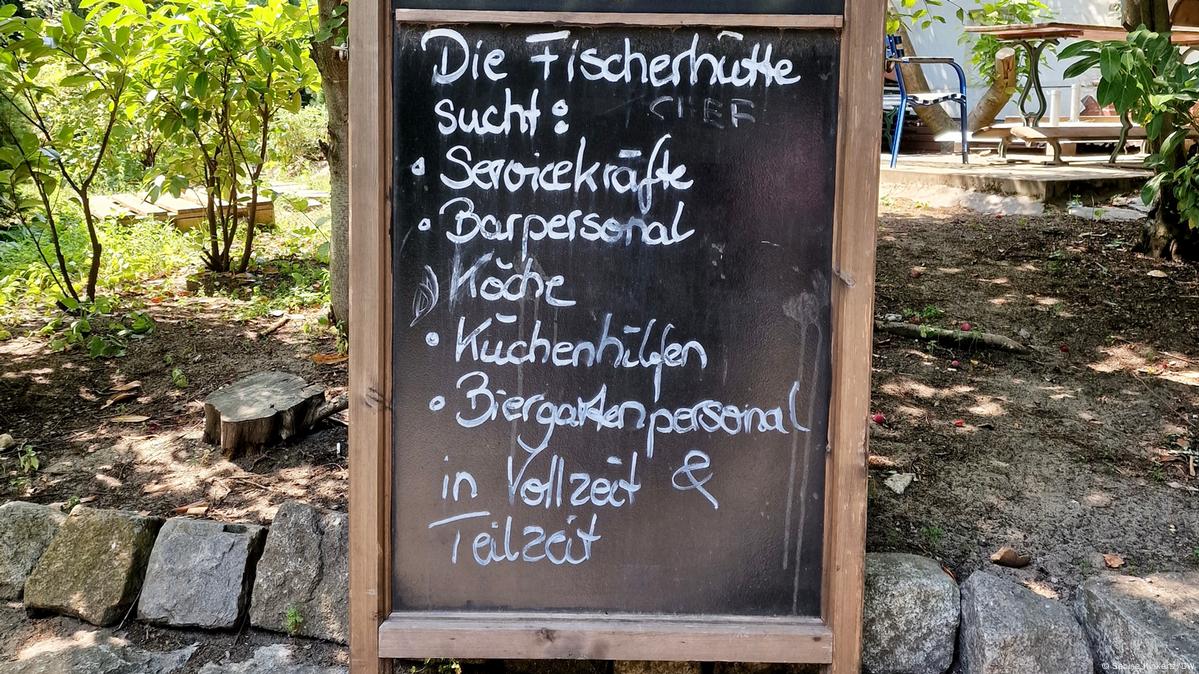 Die Fischerhütte
sucht:
CHEF
• Servicekräfte
• Barpersonal
Köche
• Küchenhilfen
• Biergartenpersonal
in Vollzeit &
Teilzeit